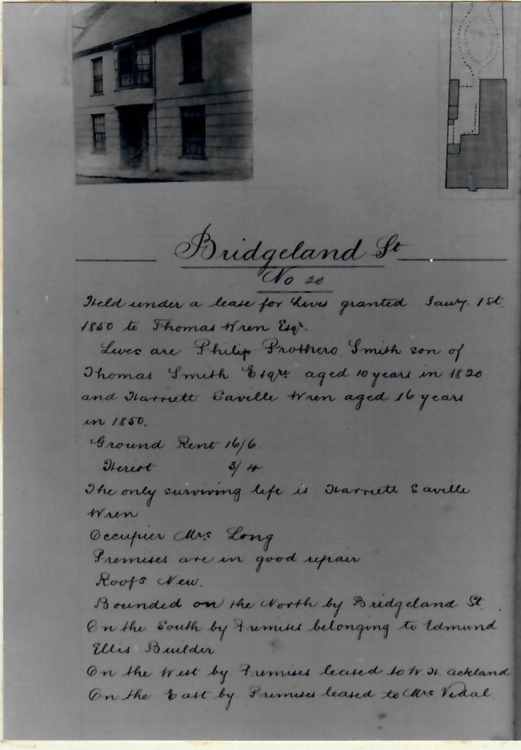 Bridgeland St
No 20
Held under a lease for Lives granted Jany. 1st
1850 to Thomas Wren Esqr.
Lives are Philip Prothero Smith son of
Thomas Smith Esqre aged 10 years in 1820
and Harriett Saville Wren aged 16 years
in 1850.
Ground Rent 16/6.
Heriot 3/4
The only surviving life is Harriett Saville
Wren
Occupier Mrs Long
Premises are in good repair
Roofs New.
Bounded on the North by Bridgeland St.
On the South by Premises belonging to Edmund
Ellis Builder
On the West by Premises leased to W. H. Ackland
On the East by Premises leased to Mrs Vidal